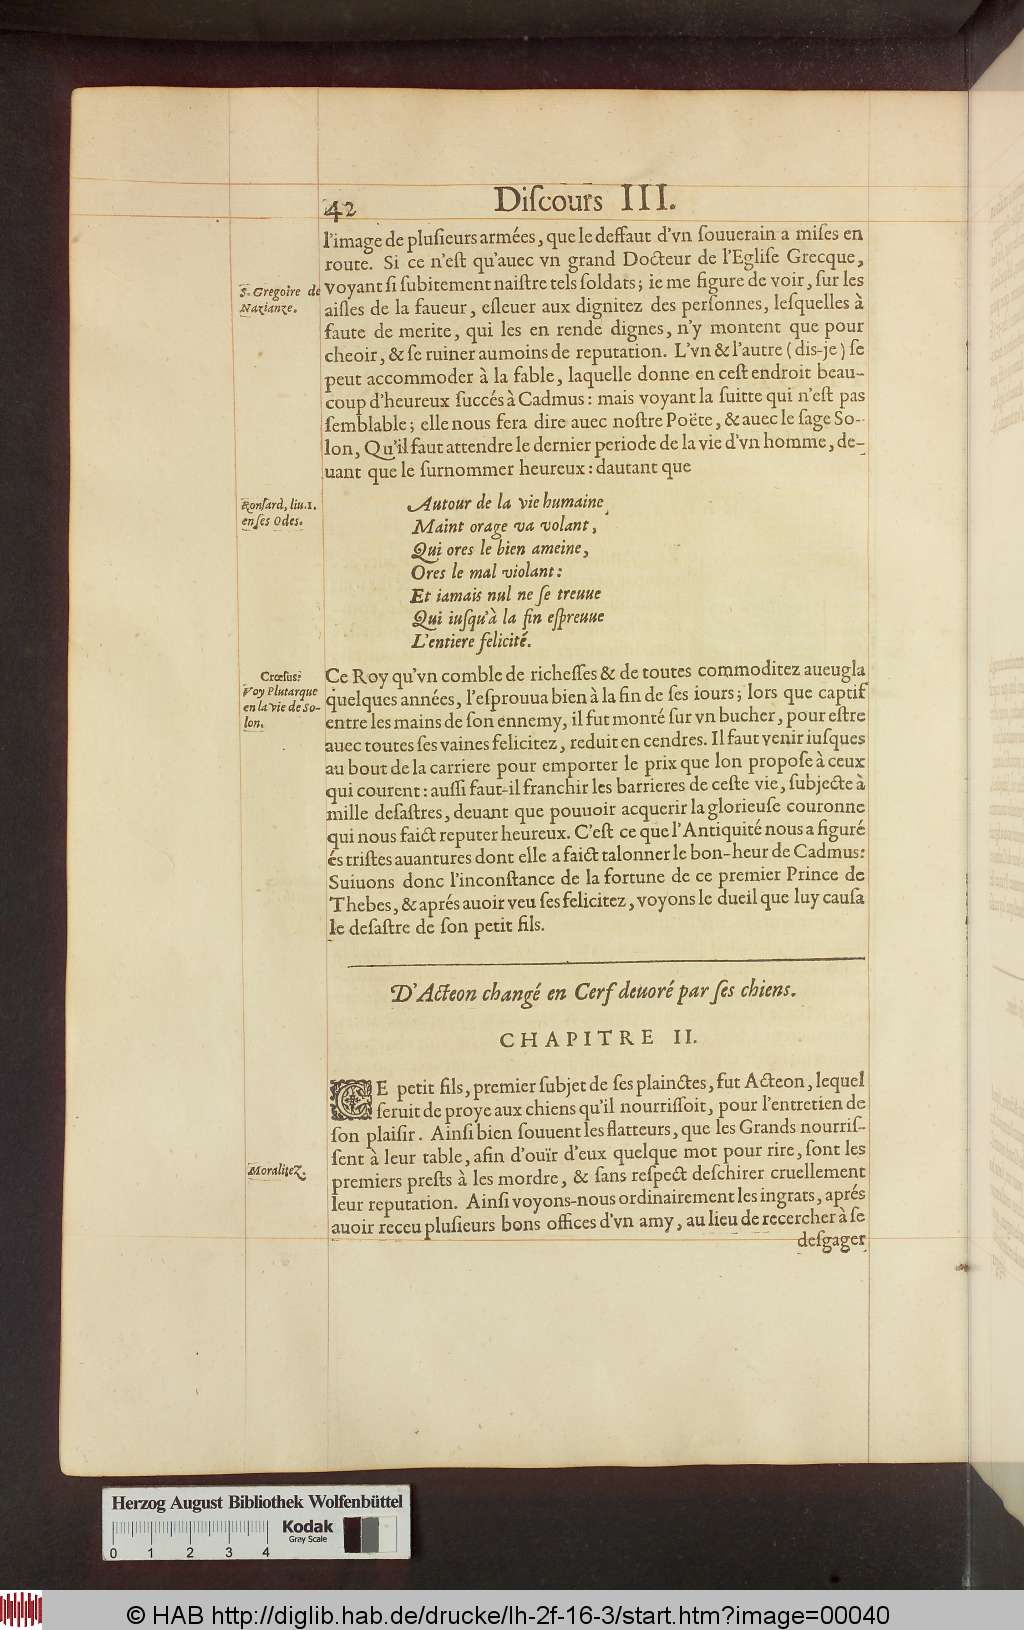 42
Diſcours III.
l'image de pluſieurs armées, que le deffaut d'vn ſouuerain a miſes en
route. Si ce n'eſt qu'auec vn grand Docteur de l'Egliſe Grecque,
S. Gregoire de
Nazianze.
voyant ſi ſubitement naiſtre tels ſoldats; ie me figure de voir, ſur les
aiſles de la faueur, eſleuer aux dignitez des perſonnes, leſquelles à
faute de merite, qui les en rende dignes, n'y montent que pour
cheoir, & ſe ruiner aumoins de reputation. L'vn & l'autre (dis-je) ſe
peut accommoder à la fable, laquelle donne en ceſt endroit beau-
coup d'heureux ſuccés à Cadmus: mais voyant la ſuitte qui n'eſt pas
ſemblable; elle nous fera dire auec noſtre Poëte, & auec le ſage So-
lon, Qu'il faut attendre le dernier periode de la vie d'vn homme, de-
uant que le ſurnommer heureux: dautant que
Ronſard, liu. 1.
en ſes Odes.
Autour de la vie humaine
Maint orage va volant,
Qui ores le bien ameine,
Ores le mal violant:
Et iamais nul ne ſe treuue
Qui iuſqu'à la fin eſpreuue
L'entiere felicité.
Crœſus.
Voy Plutarque
en la vie de So-
lon.
Ce Roy qu'vn comble de richeſſes & de toutes commoditez aueugla
quelques années, l'eſprouua bien à la fin de ſes iours; lors que captif
entre les mains de ſon ennemy, il fut monté ſur vn bucher, pour eſtre
auec toutes ſes vaines felicitez, reduit en cendres. Il faut venir iuſques
au bout de la carriere pour emporter le prix que lon propoſe à ceux
qui courent: auſſi faut-il franchir les barrieres de ceſte vie, ſubjecte à
mille deſaſtres, deuant que pouuoir acquerir la glorieuſe couronne
qui nous faict reputer heureux. C'eſt ce que l'Antiquité nous a figuré
és triſtes auantures dont elle a faict talonner le bon-heur de Cadmus:
Suiuons donc l'inconſtance de la fortune de ce premier Prince de
Thebes, & aprés auoir veu ſes felicitez, voyons le dueil que luy cauſa
le deſaſtre de ſon petit fils.
D'Acteon changé en Cerf deuoré par ſes chiens.
CHAPITRE II.
CE petit fils, premier ſubjet de ſes plainctes, fut Acteon, lequel
ſeruit de proye aux chiens qu'il nourriſſoit, pour l'entretien de
ſon plaiſir. Ainſi bien ſouuent les flatteurs, que les Grands nourriſ-
ſent à leur table, afin d'ouïr d'eux quelque mot pour rire, ſont les
Moralitez.
premiers preſts à les mordre, & ſans reſpect deſchirer cruellement
leur reputation. Ainſi voyons-nous ordinairement les ingrats, aprés
auoir receu pluſieurs bons offices d'vn amy, au lieu de recercher à ſe
deſgager
Herzog August Bibliothek Wolfenbüttel
Kodak
Gray Scale
0 1 2 3 4
© HAB http://diglib.hab.de/drucke/lh-2f-16-3/start.htm?image=00040